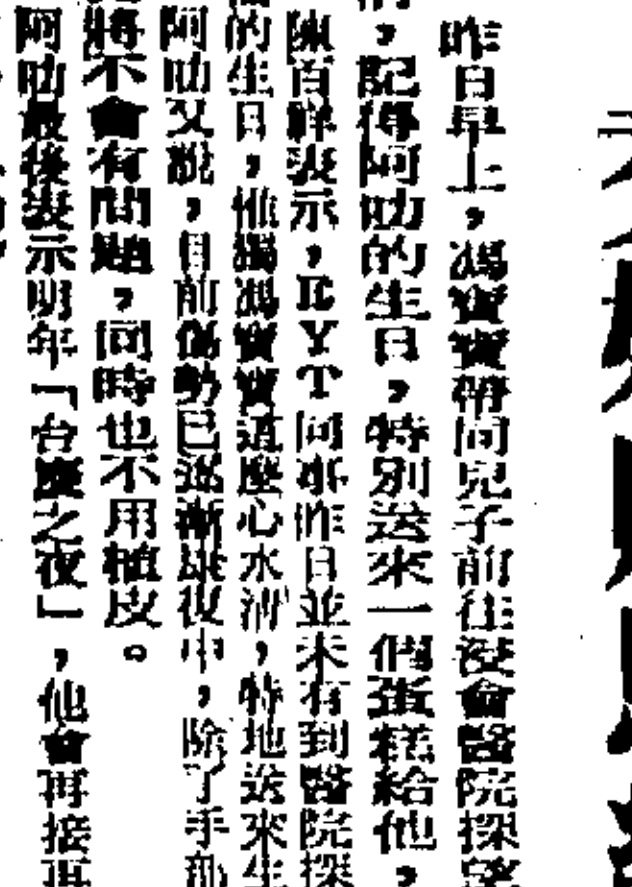 昨日早上，馮寶寶帶同兒子前往浸會醫院探望
，記得阿叻的生日，特別送來一個蛋糕給他，
陳百祥表示，EYT同事昨日並未有到醫院探
的生日，惟獨馮寶寶這麼心水清，特地送來生
阿叻又說，目前傷勢已逐漸康復中，除了手部
將不會有問題，同時也不用植皮。
阿叻最後表示明年「台慶之夜」，他會再接再